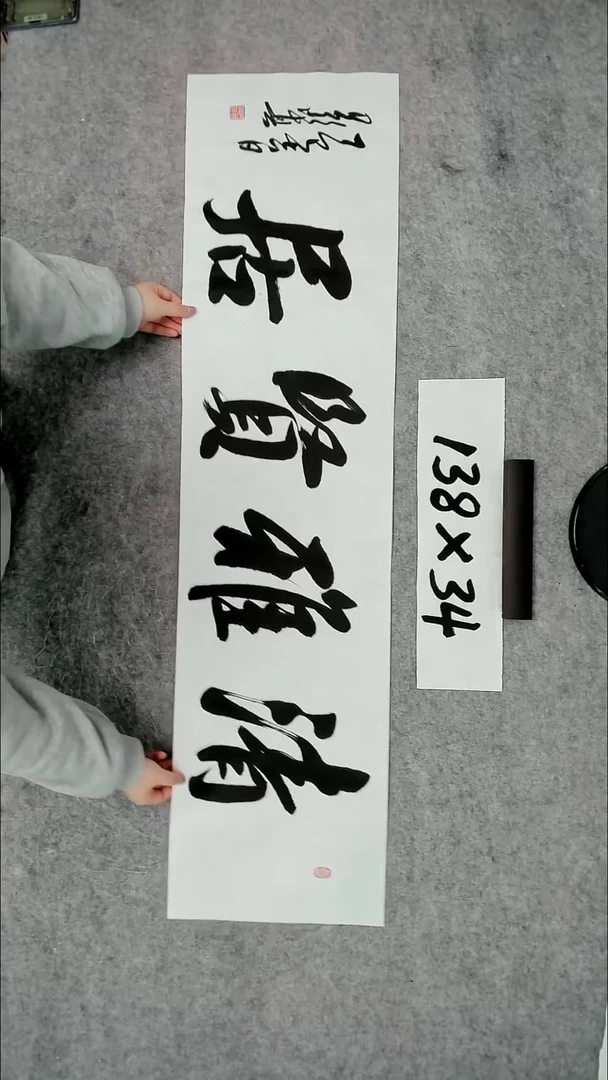 清雅賢居
138×34